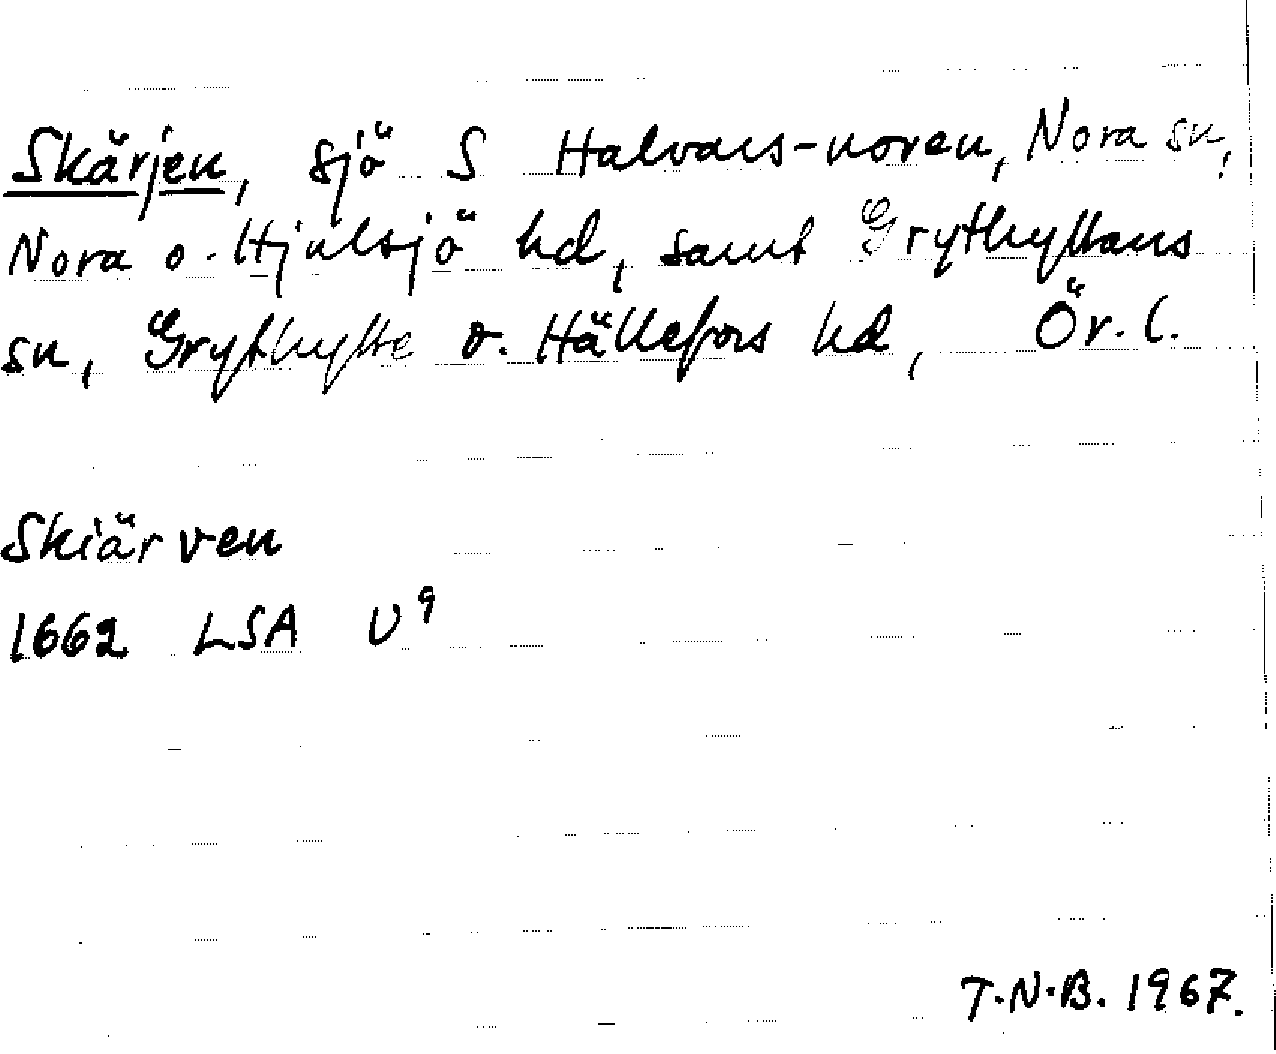 Skärjen, sjö S Halvars-noren, Nora sn,
Nora o. Hjulsjö hd, samt Grythyttans
sn, Grythytte o. Hällefors hd, Ör. l.
Skiärven
1662 LSA U9
T.N.B. 1967.